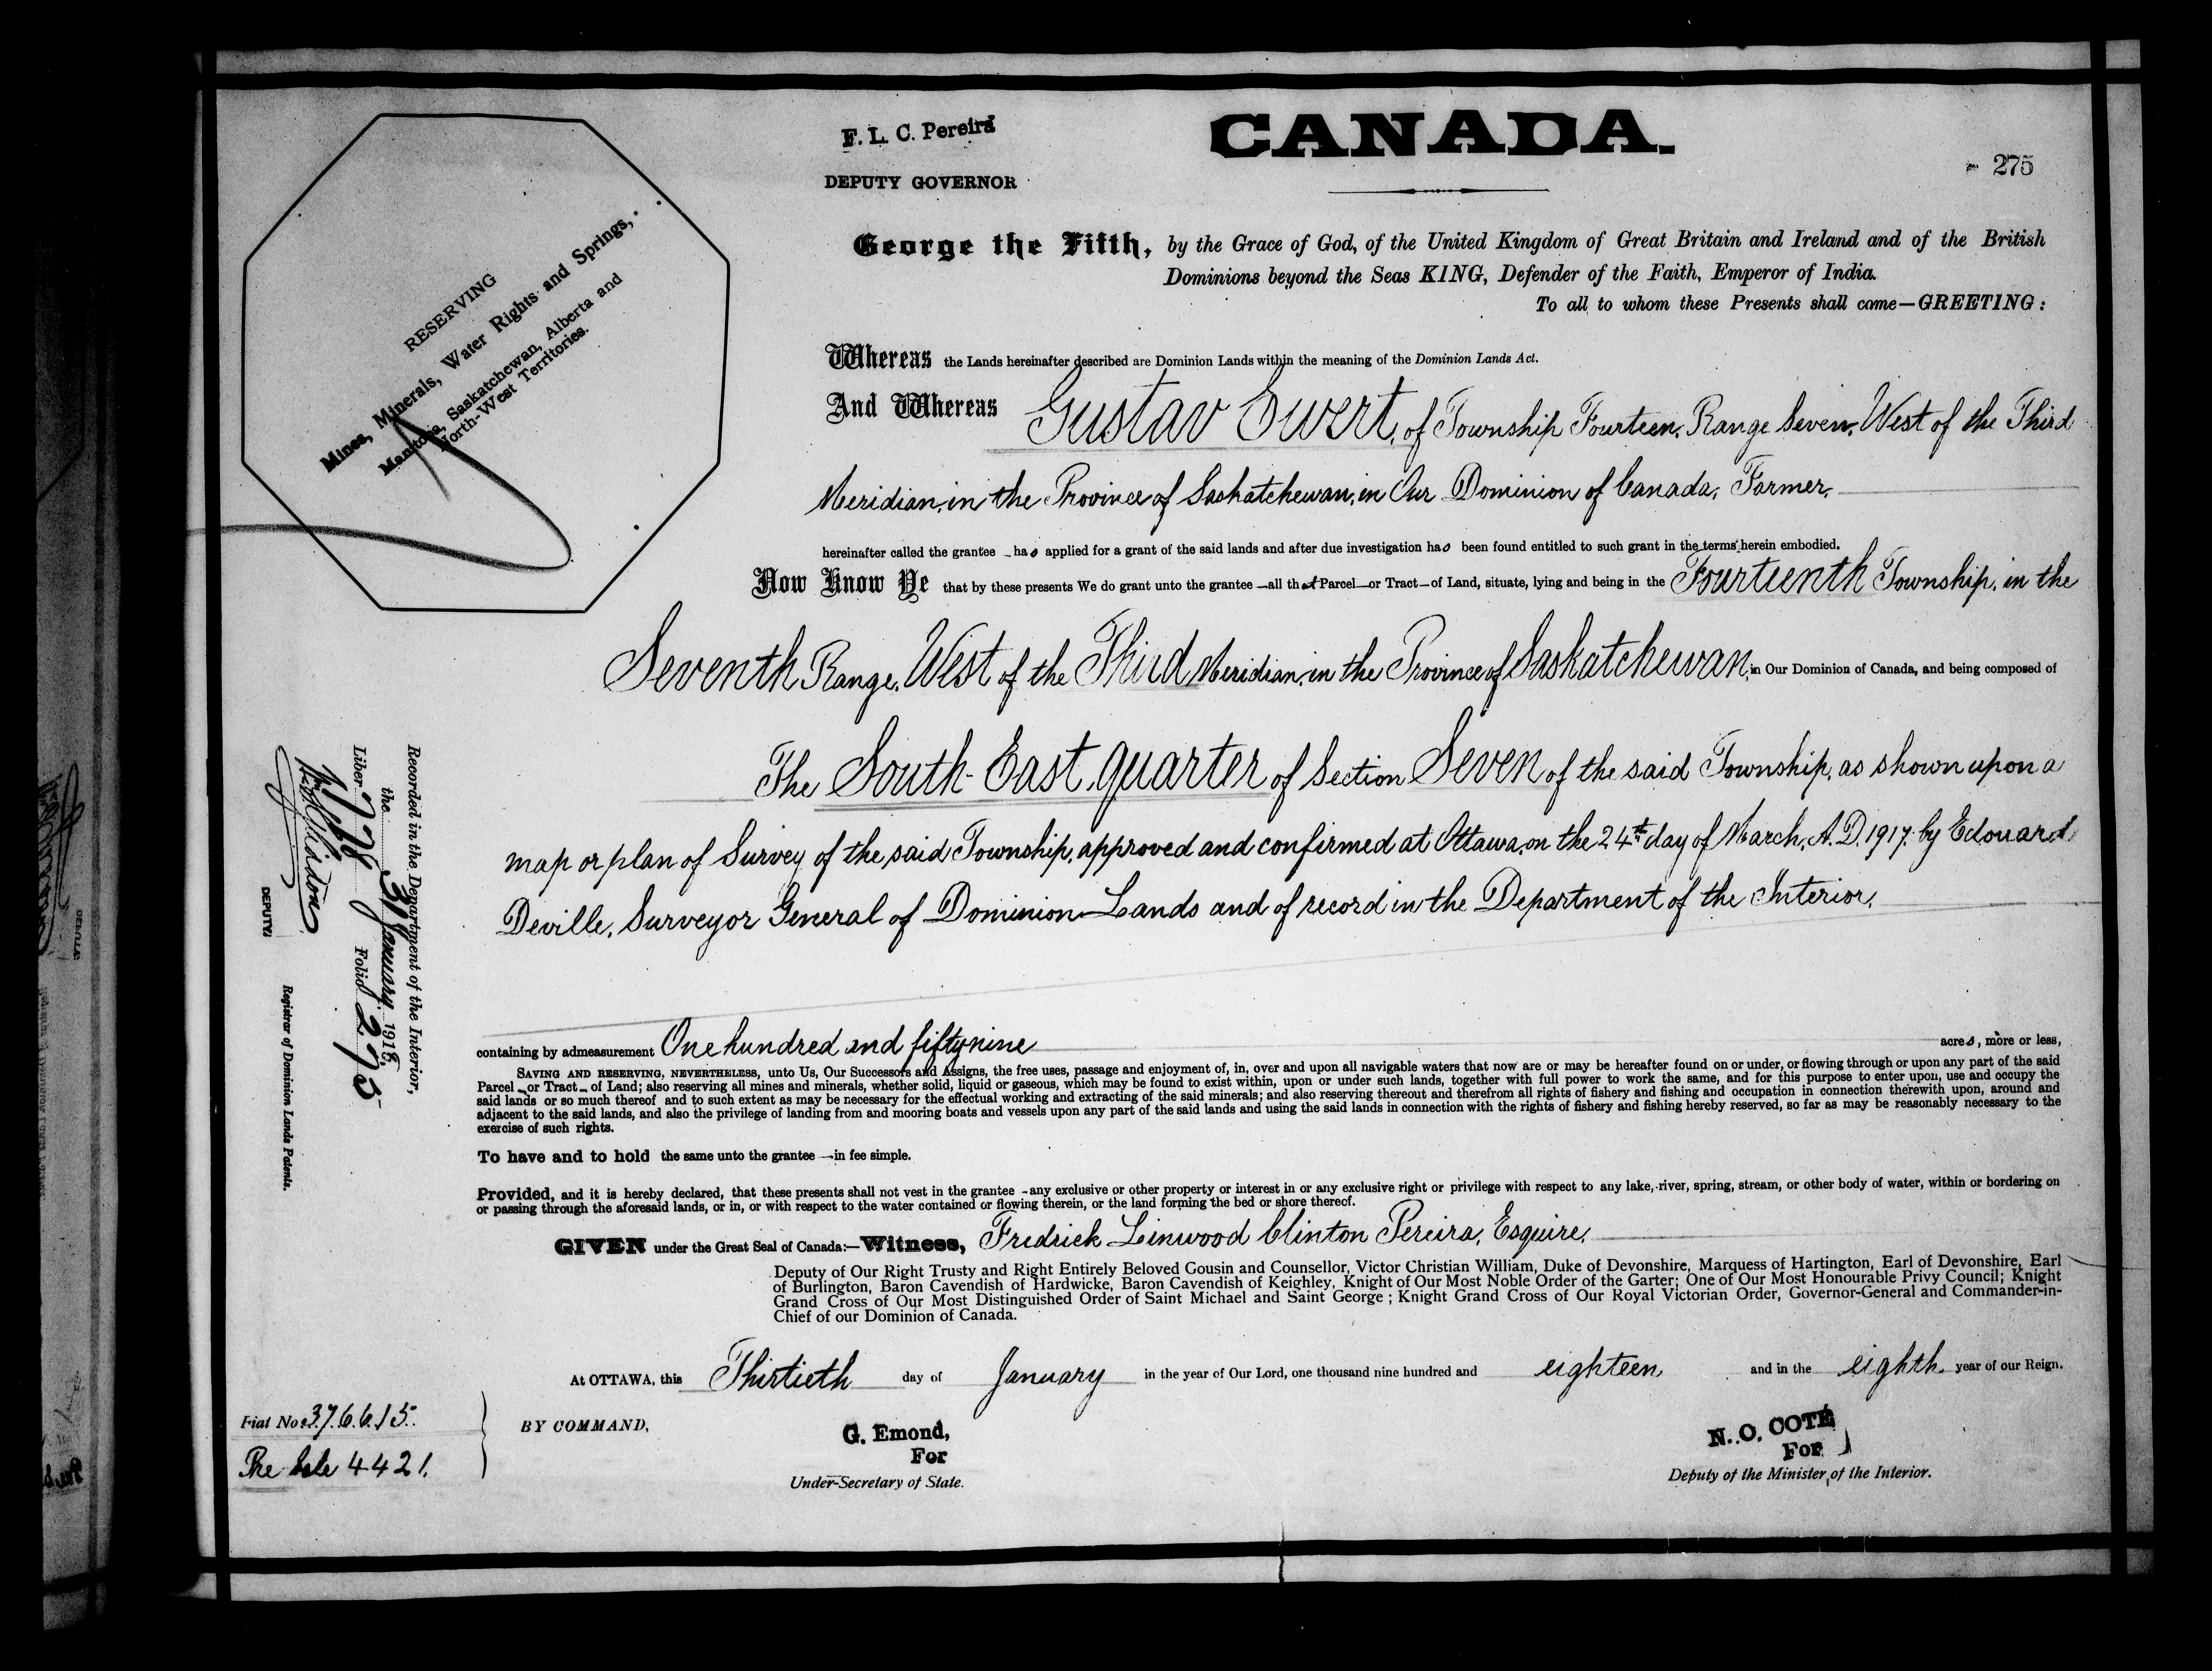 F. L. C. Pereira
DEPUTY GOVERNOR
CANADA.
275
RESERVING
Mines, Minerals, Water Rights and Springs,
Manitoba, Saskatchewan, Alberta and
North-West Territories.
George the Fifth, by the Grace of God, of the United Kingdom of Great Britain and Ireland and of the British
Dominions beyond the Seas KING, Defender of the Faith, Emperor of India.
To all to whom these Presents shall come—GREETING:
Whereas the Lands hereinafter described are Dominion Lands within the meaning of the Dominion Lands Act.
And Whereas Gustav Ewert, of Township Fourteen, Range Seven, West of the Third
Meridian, in the Province of Saskatchewan, in Our Dominion of Canada, Farmer,
hereinafter called the grantee has applied for a grant of the said lands and after due investigation has been found entitled to such grant in the terms herein embodied.
Now Know Ye that by these presents We do grant unto the grantee —all that Parcel—or Tract—of Land, situate, lying and being in the Fourteenth Township, in the
Seventh Range, West of the Third Meridian, in the Province of Saskatchewan, in Our Dominion of Canada, and being composed of
The South-East quarter of Section Seven of the said Township, as shown upon a
map or plan of Survey of the said Township, approved and confirmed at Ottawa, on the 24th day of March, A.D. 1917, by Edouard
Deville, Surveyor General of Dominion Lands and of record in the Department of the Interior,
containing by admeasurement One hundred and fifty nine acres, more or less,
SAVING AND RESERVING, NEVERTHELESS, unto Us, Our Successors and Assigns, the free uses, passage and enjoyment of, in, over and upon all navigable waters that now are or may be hereafter found on or under, or flowing through or upon any part of the said
Parcel—or Tract—of Land; also reserving all mines and minerals, whether solid, liquid or gaseous, which may be found to exist within, upon or under such lands, together with full power to work the same, and for this purpose to enter upon, use and occupy the
said lands or so much thereof and to such extent as may be necessary for the effectual working and extracting of the said minerals; and also reserving thereout and therefrom all rights of fishery and fishing and occupation in connection therewith upon, around and
adjacent to the said lands, and also the privilege of landing from and mooring boats and vessels upon any part of the said lands and using the said lands in connection with the rights of fishery and fishing hereby reserved, so far as may be reasonably necessary to the
exercise of such rights.
To have and to hold the same unto the grantee —in fee simple.
Provided, and it is hereby declared, that these presents shall not vest in the grantee -any exclusive or other property or interest in or any exclusive right or privilege with respect to any lake, river, spring, stream, or other body of water, within or bordering on
or passing through the aforesaid lands, or in, or with respect to the water contained or flowing therein, or the land forming the bed or shore thereof.
GIVEN under the Great Seal of Canada:—Witness, Fredrick Linwood Clinton Pereira, Esquire,
Deputy of Our Right Trusty and Right Entirely Beloved Gousin and Counsellor, Victor Christian William, Duke of Devonshire, Marquess of Hartington, Earl of Devonshire, Earl
of Burlington, Baron Cavendish of Hardwicke, Baron Cavendish of Keighley, Knight of Our Most Noble Order of the Garter; One of Our Most Honourable Privy Council; Knight
Grand Cross of Our Most Distinguished Order of Saint Michael and Saint George ; Knight Grand Cross of Our Royal Victorian Order, Governor-General and Commander-in-
Chief of our Dominion of Canada.
At OTTAWA, this Thirtieth day of January in the year of Our Lord, one thousand nine hundred and eighteen and in the eighth year of our Reign.
BY COMMAND,
G. Emond,
For
Under-Secretary of State.
N. O. COTÉ
For
Deputy of the Minister of the Interior.
Fiat No. 376615.
Pre Sale 4421.
Recorded in the Department of the Interior,
the 31 January 1918,
Liber 776 Folio 275
DEPUTY
Registrar of Dominion Lands Patents.